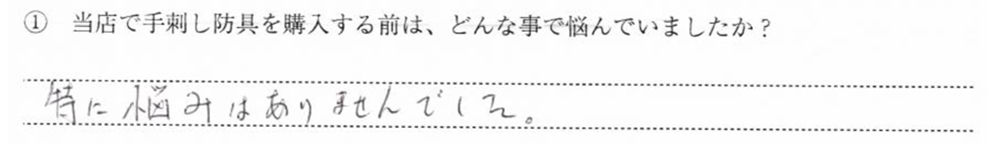 ① 当店で手刺し防具を購入する前は、どんな事で悩んでいましたか？
特に悩みはありませんでした。